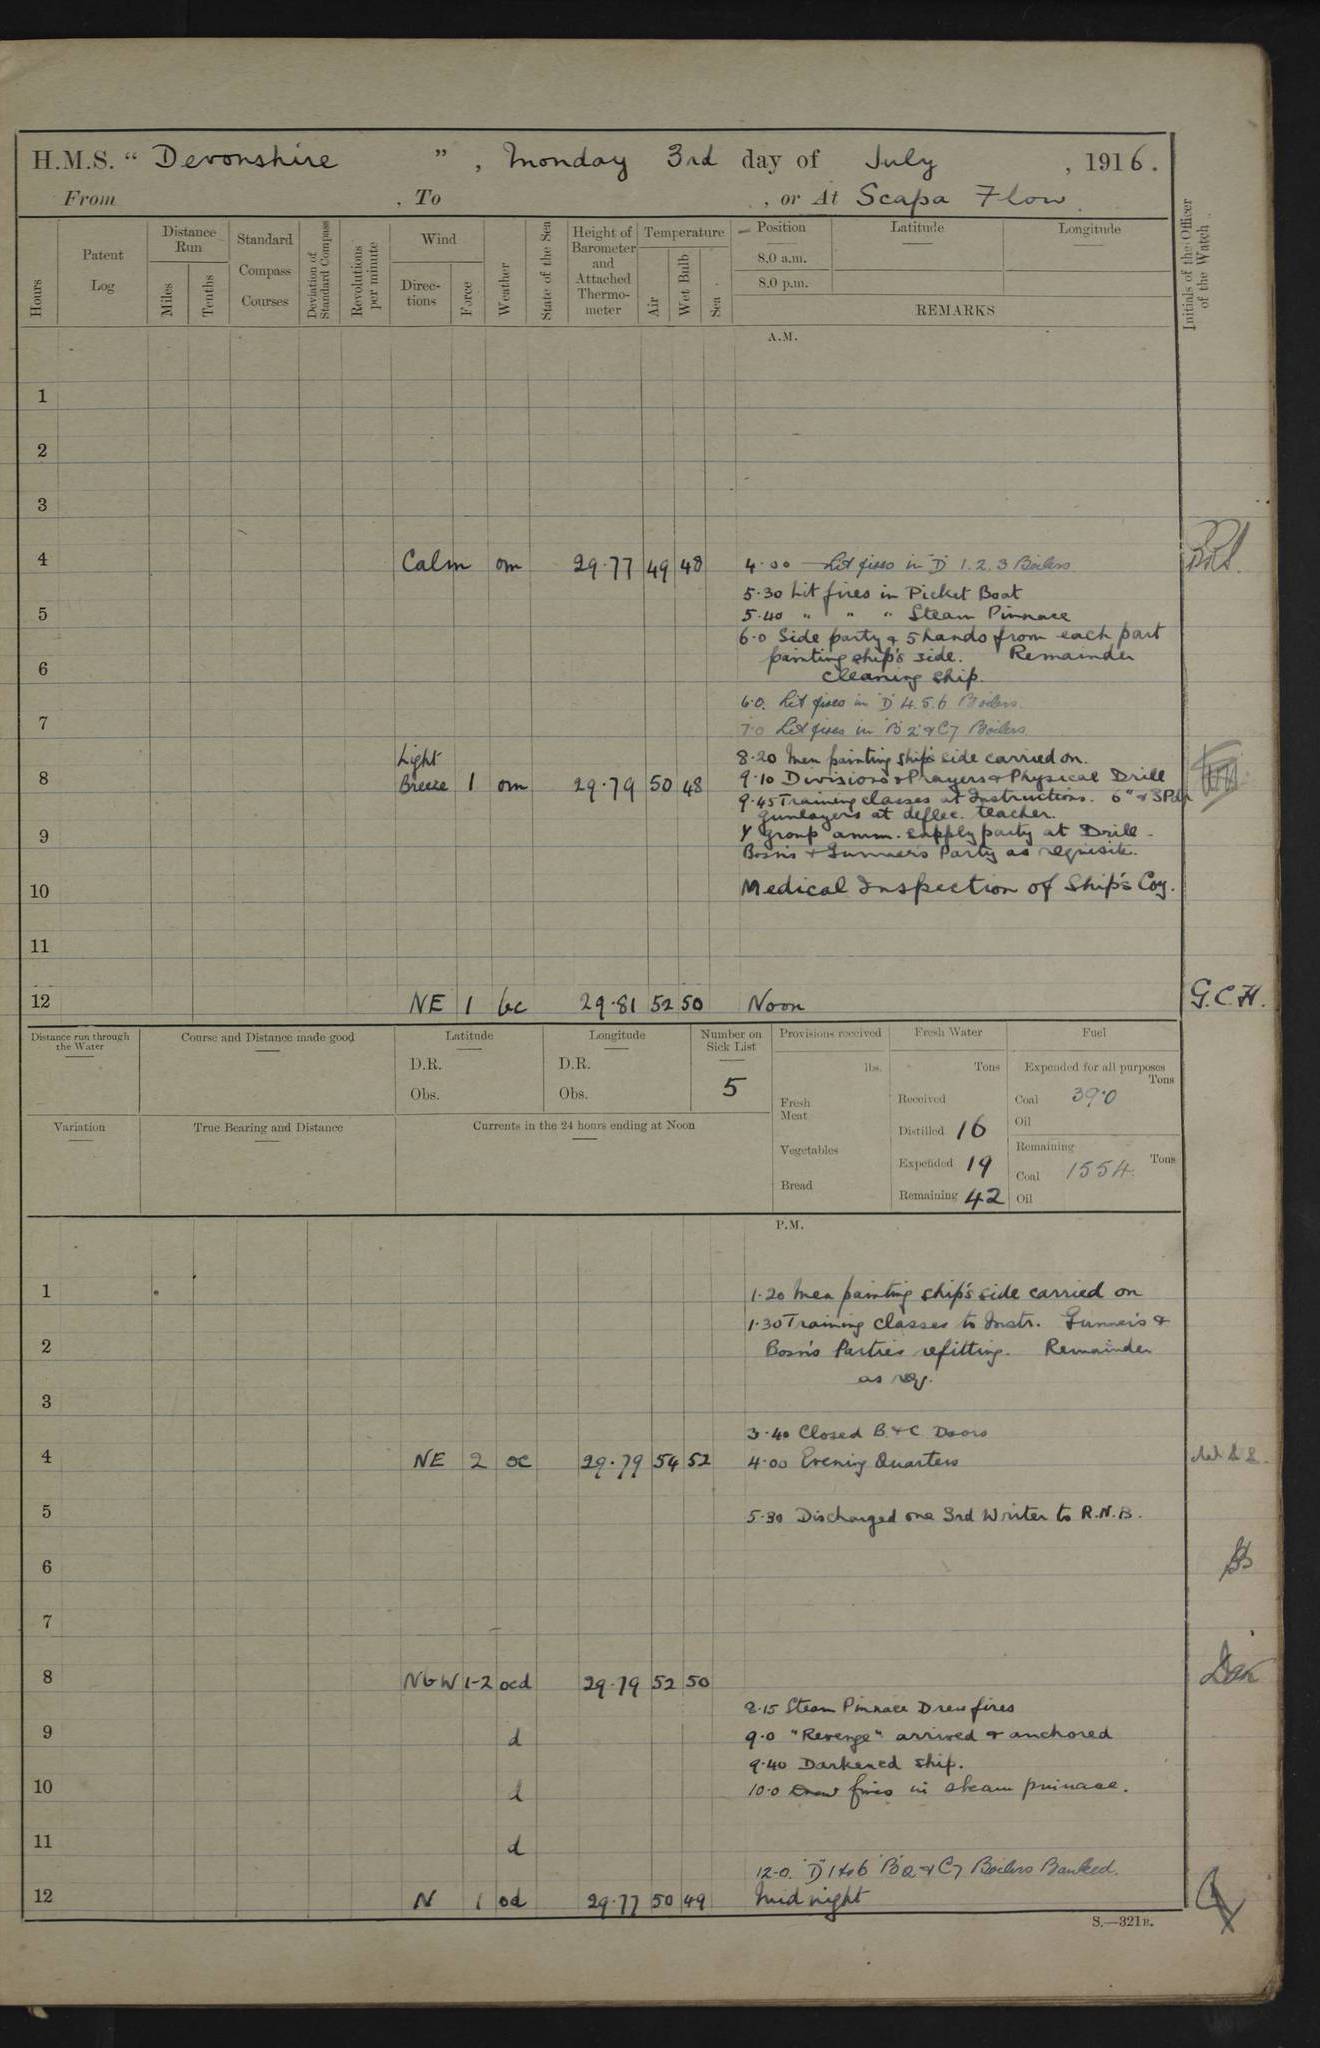 H.M.S. “ Devonshire ” , Monday 3rd day of July , 1916.
From , To , or At Scapa Flow
Hours
Patent Log
Distance Run
Miles
Tenths
Standard Compass Courses
Deviation of Standard Compass
Revolutions per minute
Wind
Direc-tions
Force
Weather
State of the Sea
Height of Barometer and Attached Thermo-meter
Temperature
Air
Wet Bulb
Sea
Position
8.0 a.m.
8.0 p.m.
Latitude
Longitude
REMARKS
Initials of the Officer of the Watch
A.M.
1
2
3
4 Calm om 29.77 49 48 4.00 Lit fires in "D" 1.2.3 Boilers
5.30 Lit fires in Picket Boat
5 5.40 " " " Steam Pinnace
6.0 Side party & 5 hands from each part
painting ship's side. Remainder
6 cleaning ship.
6.0. Lit fires in 'D' 4.5.6 Boilers.
7 7.0 Lit fires in 'B' 2 & C7 Boilers
Light 8.20 Men painting ship's side carried on.
8 Breeze 1 om 29.79 50 48 9.10 Divisions & Prayers & Physical Drill
9.45 Training classes at Instructions. 6" & 3Pdr
gunlayers at deflec. teacher.
9 Y group amm. supply party at Drill.
Bosn's & Gunner's Party as requisite.
10 Medical Inspection of Ship's Coy.
11
12 NE 1 bc 29.81 52 50 Noon G.C.H.
Distance run through the Water
Course and Distance made good
Latitude
D.R.
Obs.
Longitude
D.R.
Obs.
Number on Sick List
5
Provisions received
lbs.
Fresh Meat
Vegetables
Bread
Fresh Water
Tons
Received
Distilled 16
Expended 19
Remaining 42
Fuel
Expended for all purposes
Tons
Coal 39.0
Oil
Remaining
Tons
Coal 1554.
Oil
Variation
True Bearing and Distance
Currents in the 24 hours ending at Noon
P.M.
1 1.20 Men painting ship's side carried on
1.30 Training classes to Instr. Gunner's &
2 Bosn's Parties refitting. Remainder
as req.
3
3.40 Closed B. & C. Doors
4 NE 2 oc 29.79 54 52 4.00 Evening Quarters
5 5.30 Discharged one 3rd Writer to R.N.B.
6
7
8 NbW 1-2 ocd 29.79 52 50
8.15 Steam Pinnace Drew fires
9 d 9.0 "Revenge" arrived & anchored
9.40 Darkened ship.
10 d 10.0 Drew fires in steam pinnace.
11 d
12.0. 'D' 1 to 6 'B' 2 & C7 Boilers Banked.
12 N 1 od 29.77 50 49 Midnight
S.—321B.